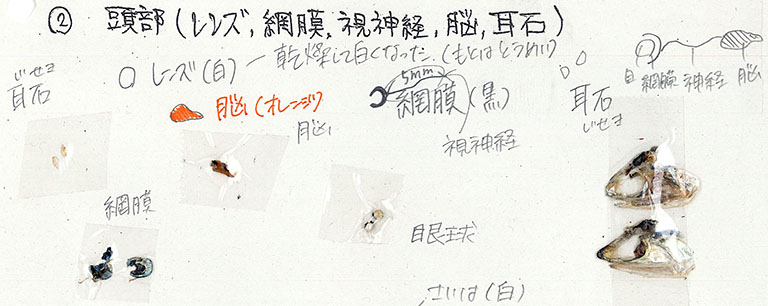 ② 頭部(レンズ,網膜,視神経,脳,耳石)
じせき
耳石
レンズ(白)ー乾燥して白くなった.(もとはとうめい)
脳(オレンジ)
脳
5mm
網膜(黒)
視神経
耳石
じせき
目 網膜 神経 脳
網膜
眼球
さいは(白)